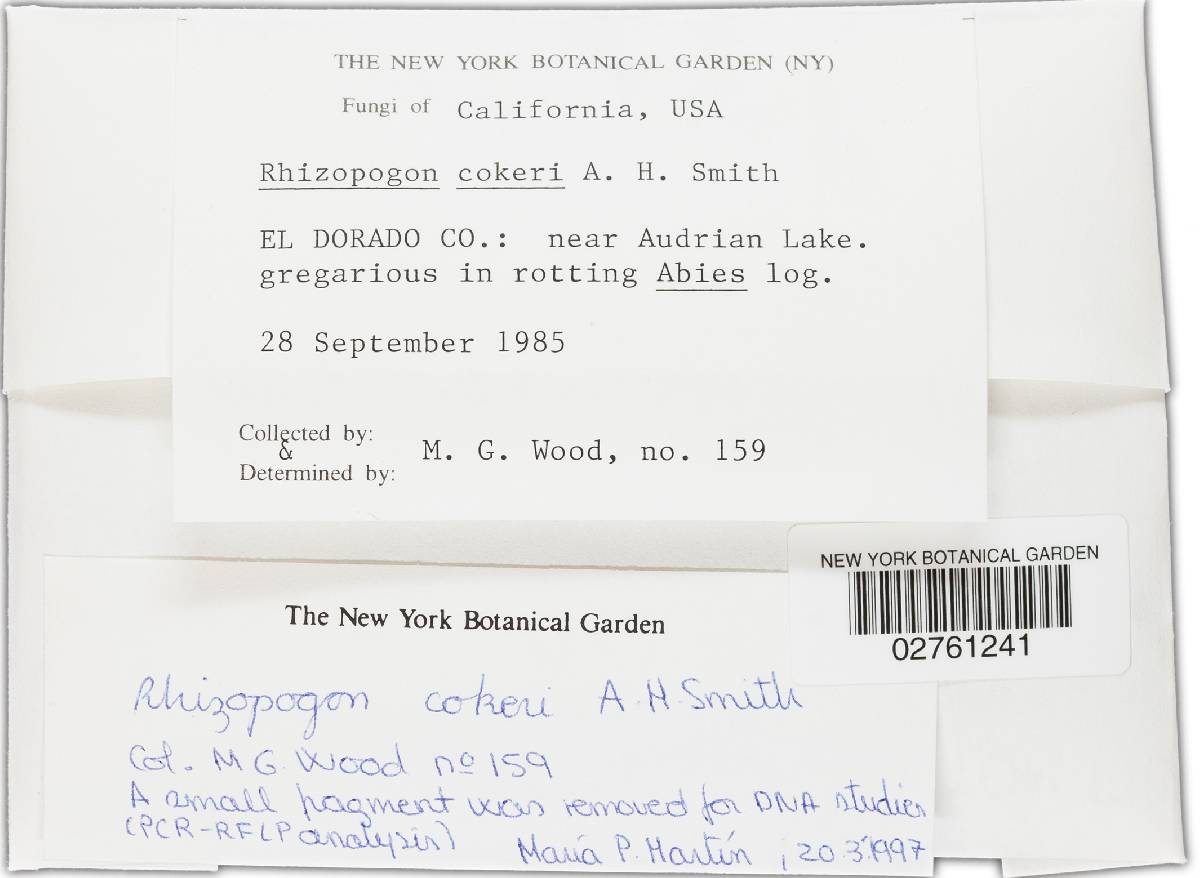 THE NEW YORK BOTANICAL GARDEN (NY)
Fungi of California, USA
Rhizopogon cokeri A. H. Smith
EL DORADO CO.: near Audrian Lake.
gregarious in rotting Abies log.
28 September 1985
Collected by:
&
Determined by:
M. G. Wood, no. 159
NEW YORK BOTANICAL GARDEN
02761241
The New York Botanical Garden
Rhizopogon cokeri A. H. Smith
Col. M G. Wood nº 159
A small fragment was removed for DNA studies
(PCR-RFLP analysis)
María P. Martín ; 20.3.1997